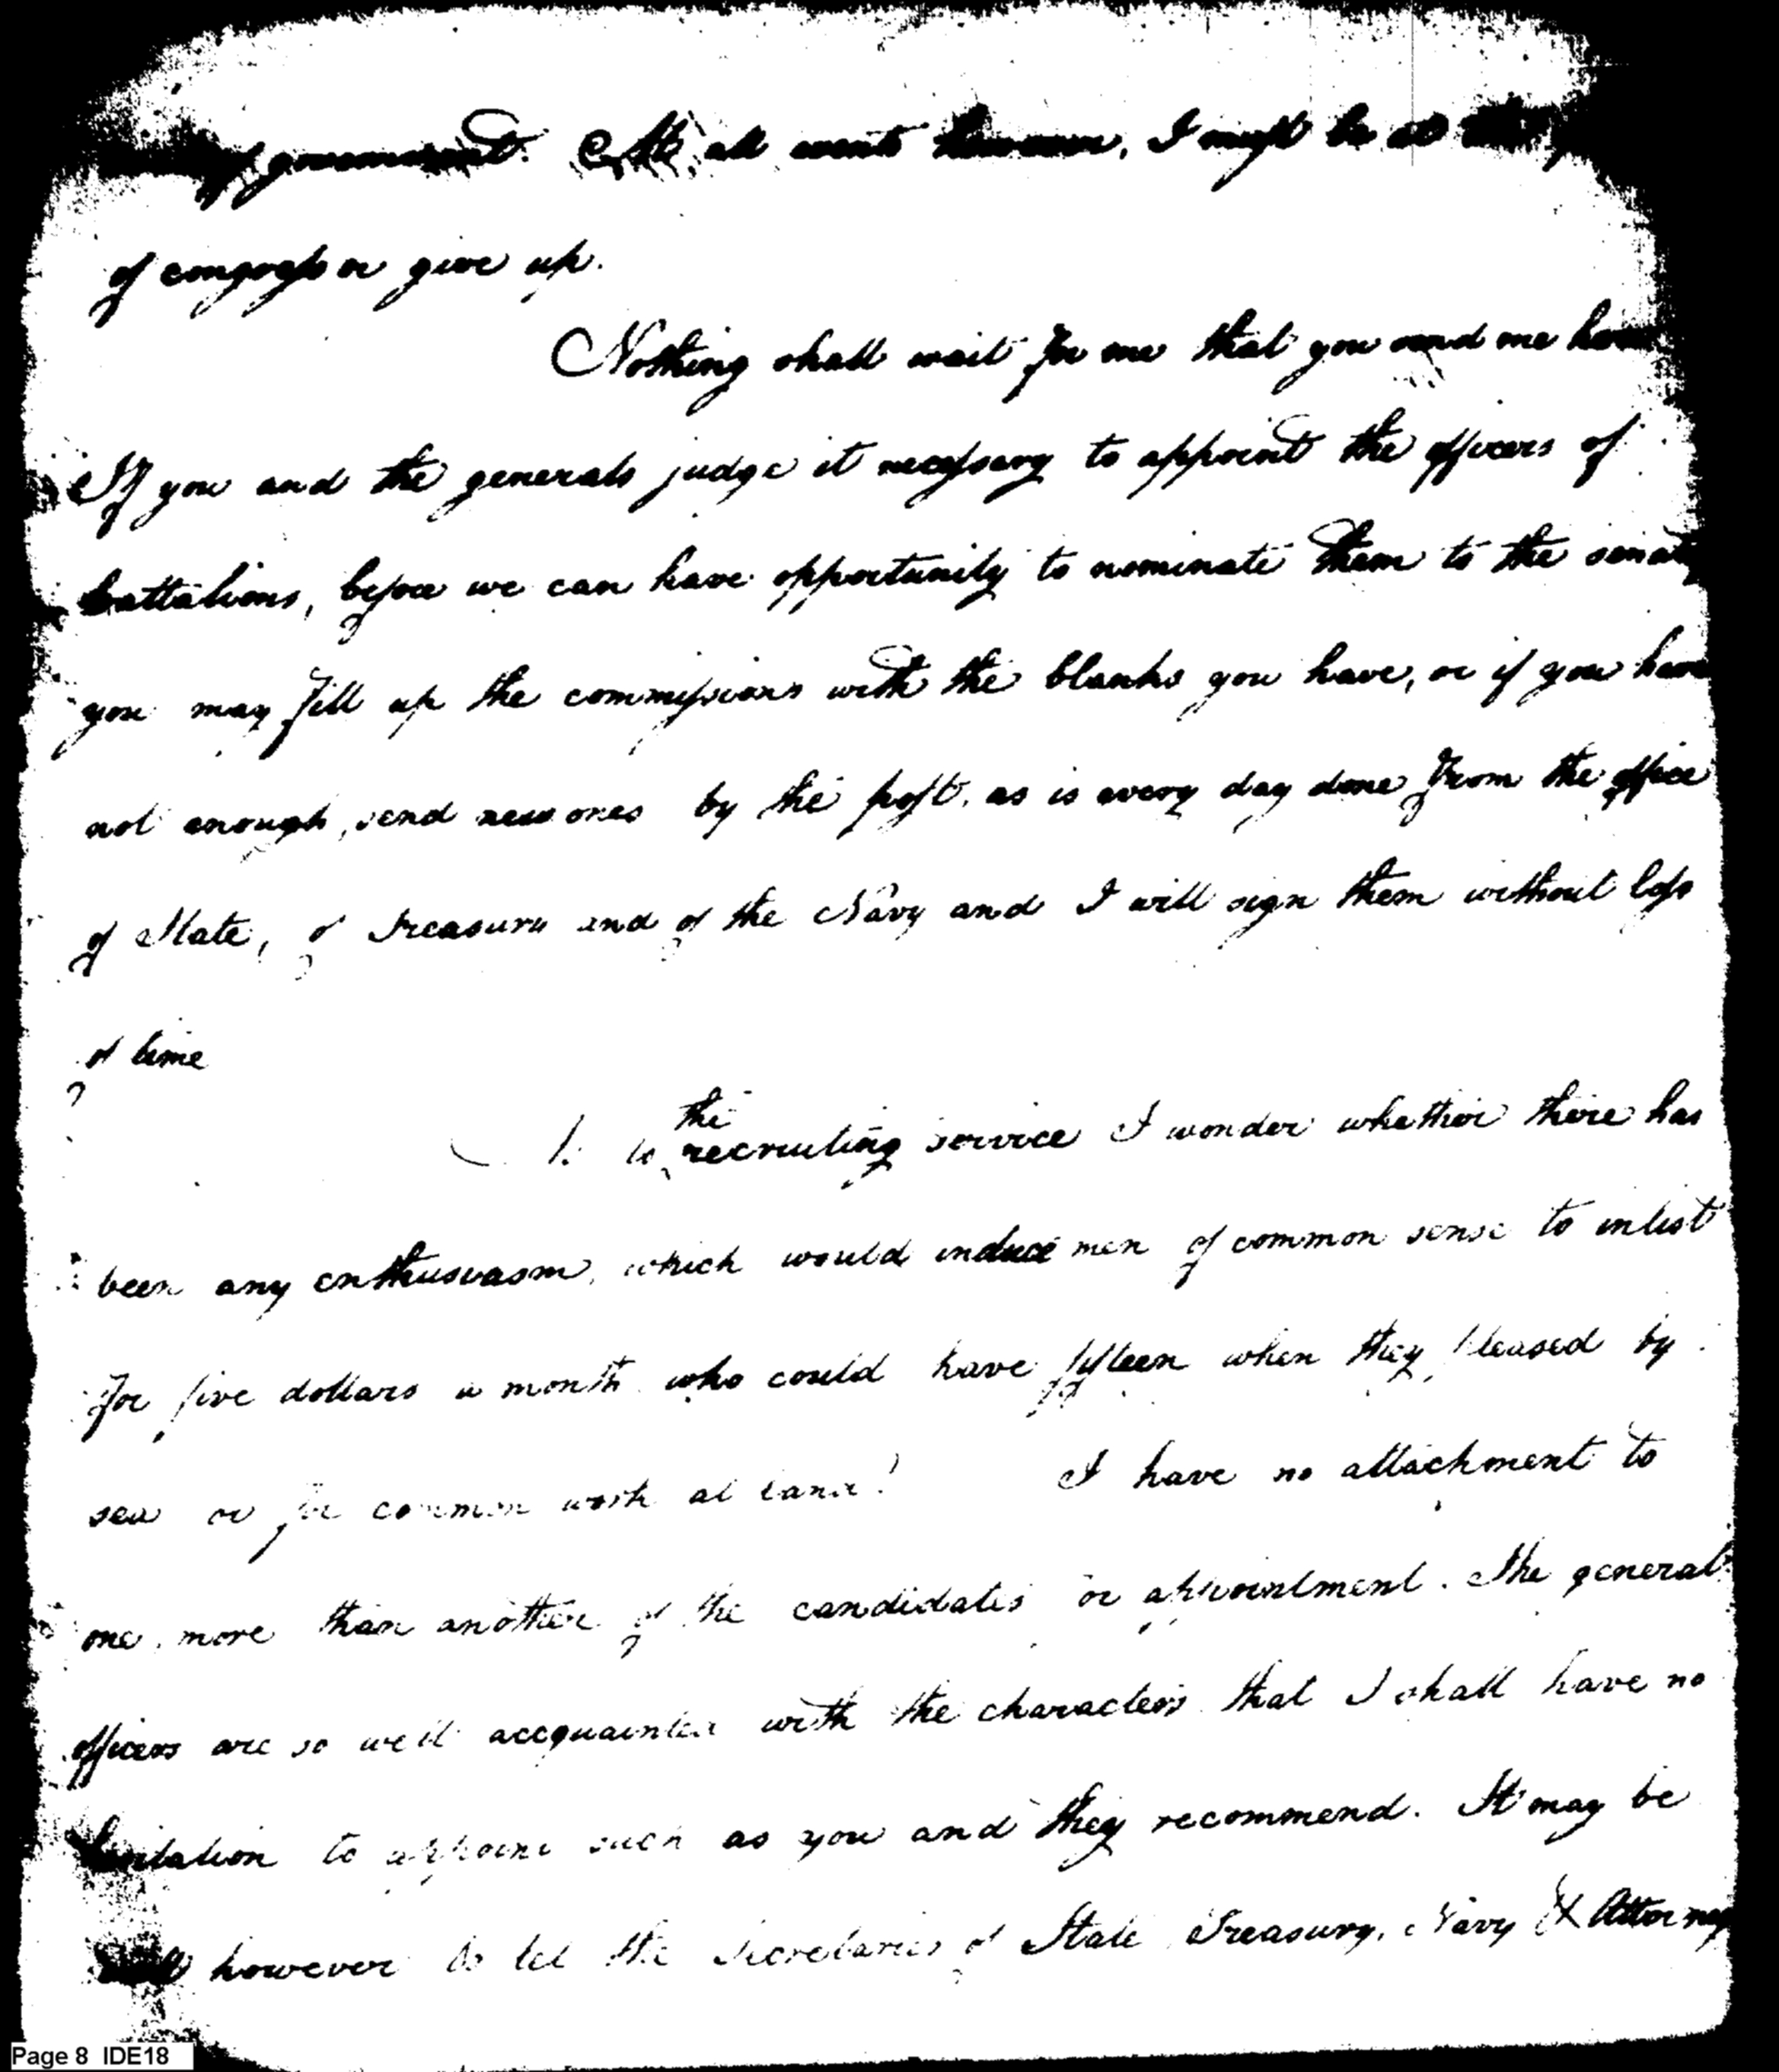 of government. At all events however, I must be at the
of congress or give up.
Nothing shall wait for me that you send me here
If you and the generals judge it necessary to appoint the officers of
battalions, before we can have opportunity to nominate them to the senate
you may fill up the commissions with the blanks you have, or if you have
not enough, send new ones by the post, as is every day done from the office
of State, of Treasury and of the Navy and I will sign them without loss
of time
As to the recruiting service I wonder whether there has
been any enthusiasm, which would induce men of common sense to inlist
for five dollars a month who could have fifteen when they pleased by
sea or for common work at land! I have no attachment to
one more than another of the candidates for appointment. The general
officers are so well accquainted with the characters that I shall have no
hesitation to appoint such as you and they recommend. It may be
well however to let the Secretaries of State Treasury, Navy & Attorney
Page 8 IDE18